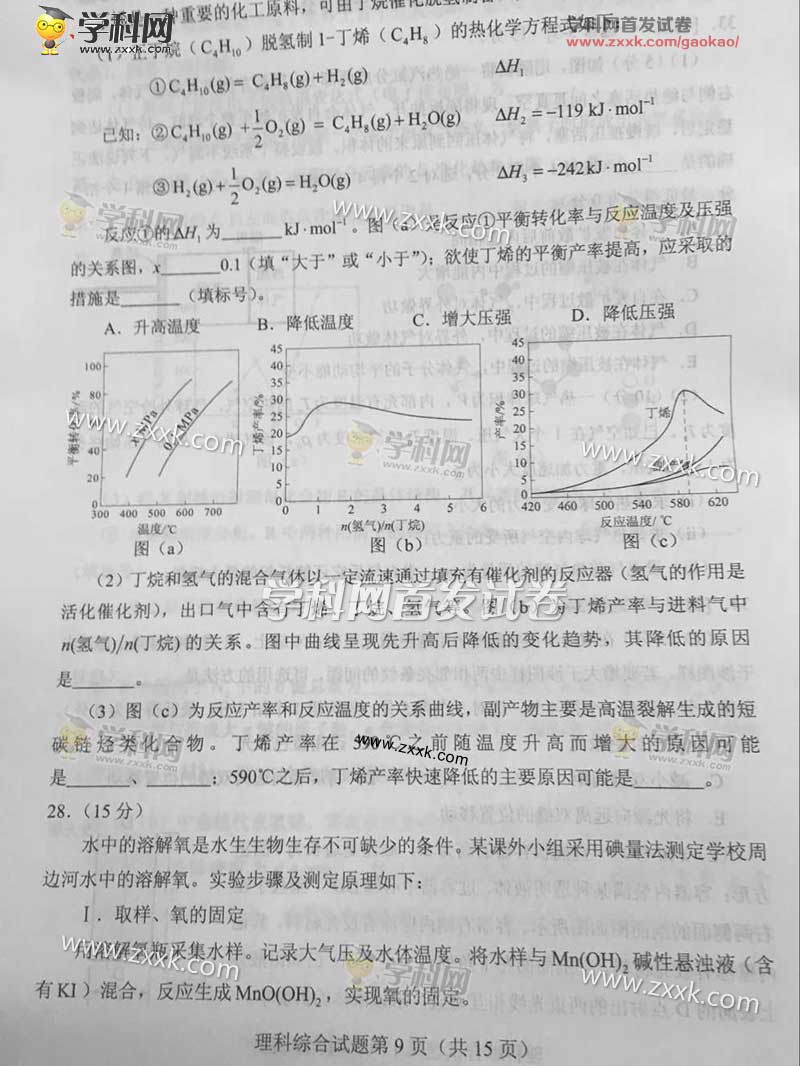 种重要的化工原料，可由丁烷催化脱氢制备
学科网首发试卷
www.zxxk.com/gaokao/
学科网
www.zxxk.com
（1）正丁烷（C₄H₁₀）脱氢制1-丁烯（C₄H₈）的热化学方程式如下：
①C₄H₁₀(g)= C₄H₈(g)+H₂(g) ΔH₁
已知：②C₄H₁₀(g) +1/2O₂(g) = C₄H₈(g)+H₂O(g) ΔH₂=−119 kJ·mol⁻¹
③H₂(g)+1/2O₂(g)=H₂O(g) ΔH₃=−242kJ·mol⁻¹
学科网
www.zxxk.com
反应①的ΔH₁为______kJ·mol⁻¹。图（a）是反应①平衡转化率与反应温度及压强
的关系图，x______0.1（填“大于”或“小于”）；欲使丁烯的平衡产率提高，应采取的
措施是______（填标号）。
A．升高温度 B．降低温度 C．增大压强 D．降低压强
平衡转化率/%
100
80
60
40
20
0
x MPa
0.1 MPa
300 400 500 600 700
温度/℃
图（a）
丁烯产率/%
45
40
35
30
25
20
15
10
5
0
0 1 2 3 4 5 6
n(氢气)/n(丁烷)
图（b）
产率/%
45
40
35
30
25
20
15
10
5
0
丁烯
副产物
420 460 500 540 580 620
反应温度/℃
图（c）
www.zxxk.com
学科网
www.zxxk.com
（2）丁烷和氢气的混合气体以一定流速通过填充有催化剂的反应器（氢气的作用是
活化催化剂），出口气中含有丁烯、丁烷、氢气等。图（b）为丁烯产率与进料气中
学科网首发试卷
n(氢气)/n(丁烷)的关系。图中曲线呈现先升高后降低的变化趋势，其降低的原因
是______。
（3）图（c）为反应产率和反应温度的关系曲线，副产物主要是高温裂解生成的短
碳链烃类化合物。丁烯产率在590℃之前随温度升高而增大的原因可能
www.zxxk.com
是______、______；590℃之后，丁烯产率快速降低的主要原因可能是______。
28.（15分）
水中的溶解氧是水生生物生存不可缺少的条件。某课外小组采用碘量法测定学校周
边河水中的溶解氧。实验步骤及测定原理如下：
Ⅰ．取样、氧的固定
用溶解氧瓶采集水样。记录大气压及水体温度。将水样与Mn(OH)₂碱性悬浊液（含
www.zxxk.com
学科网
www.zxxk.com
有KI）混合，反应生成MnO(OH)₂，实现氧的固定。
理科综合试题第9页（共15页）